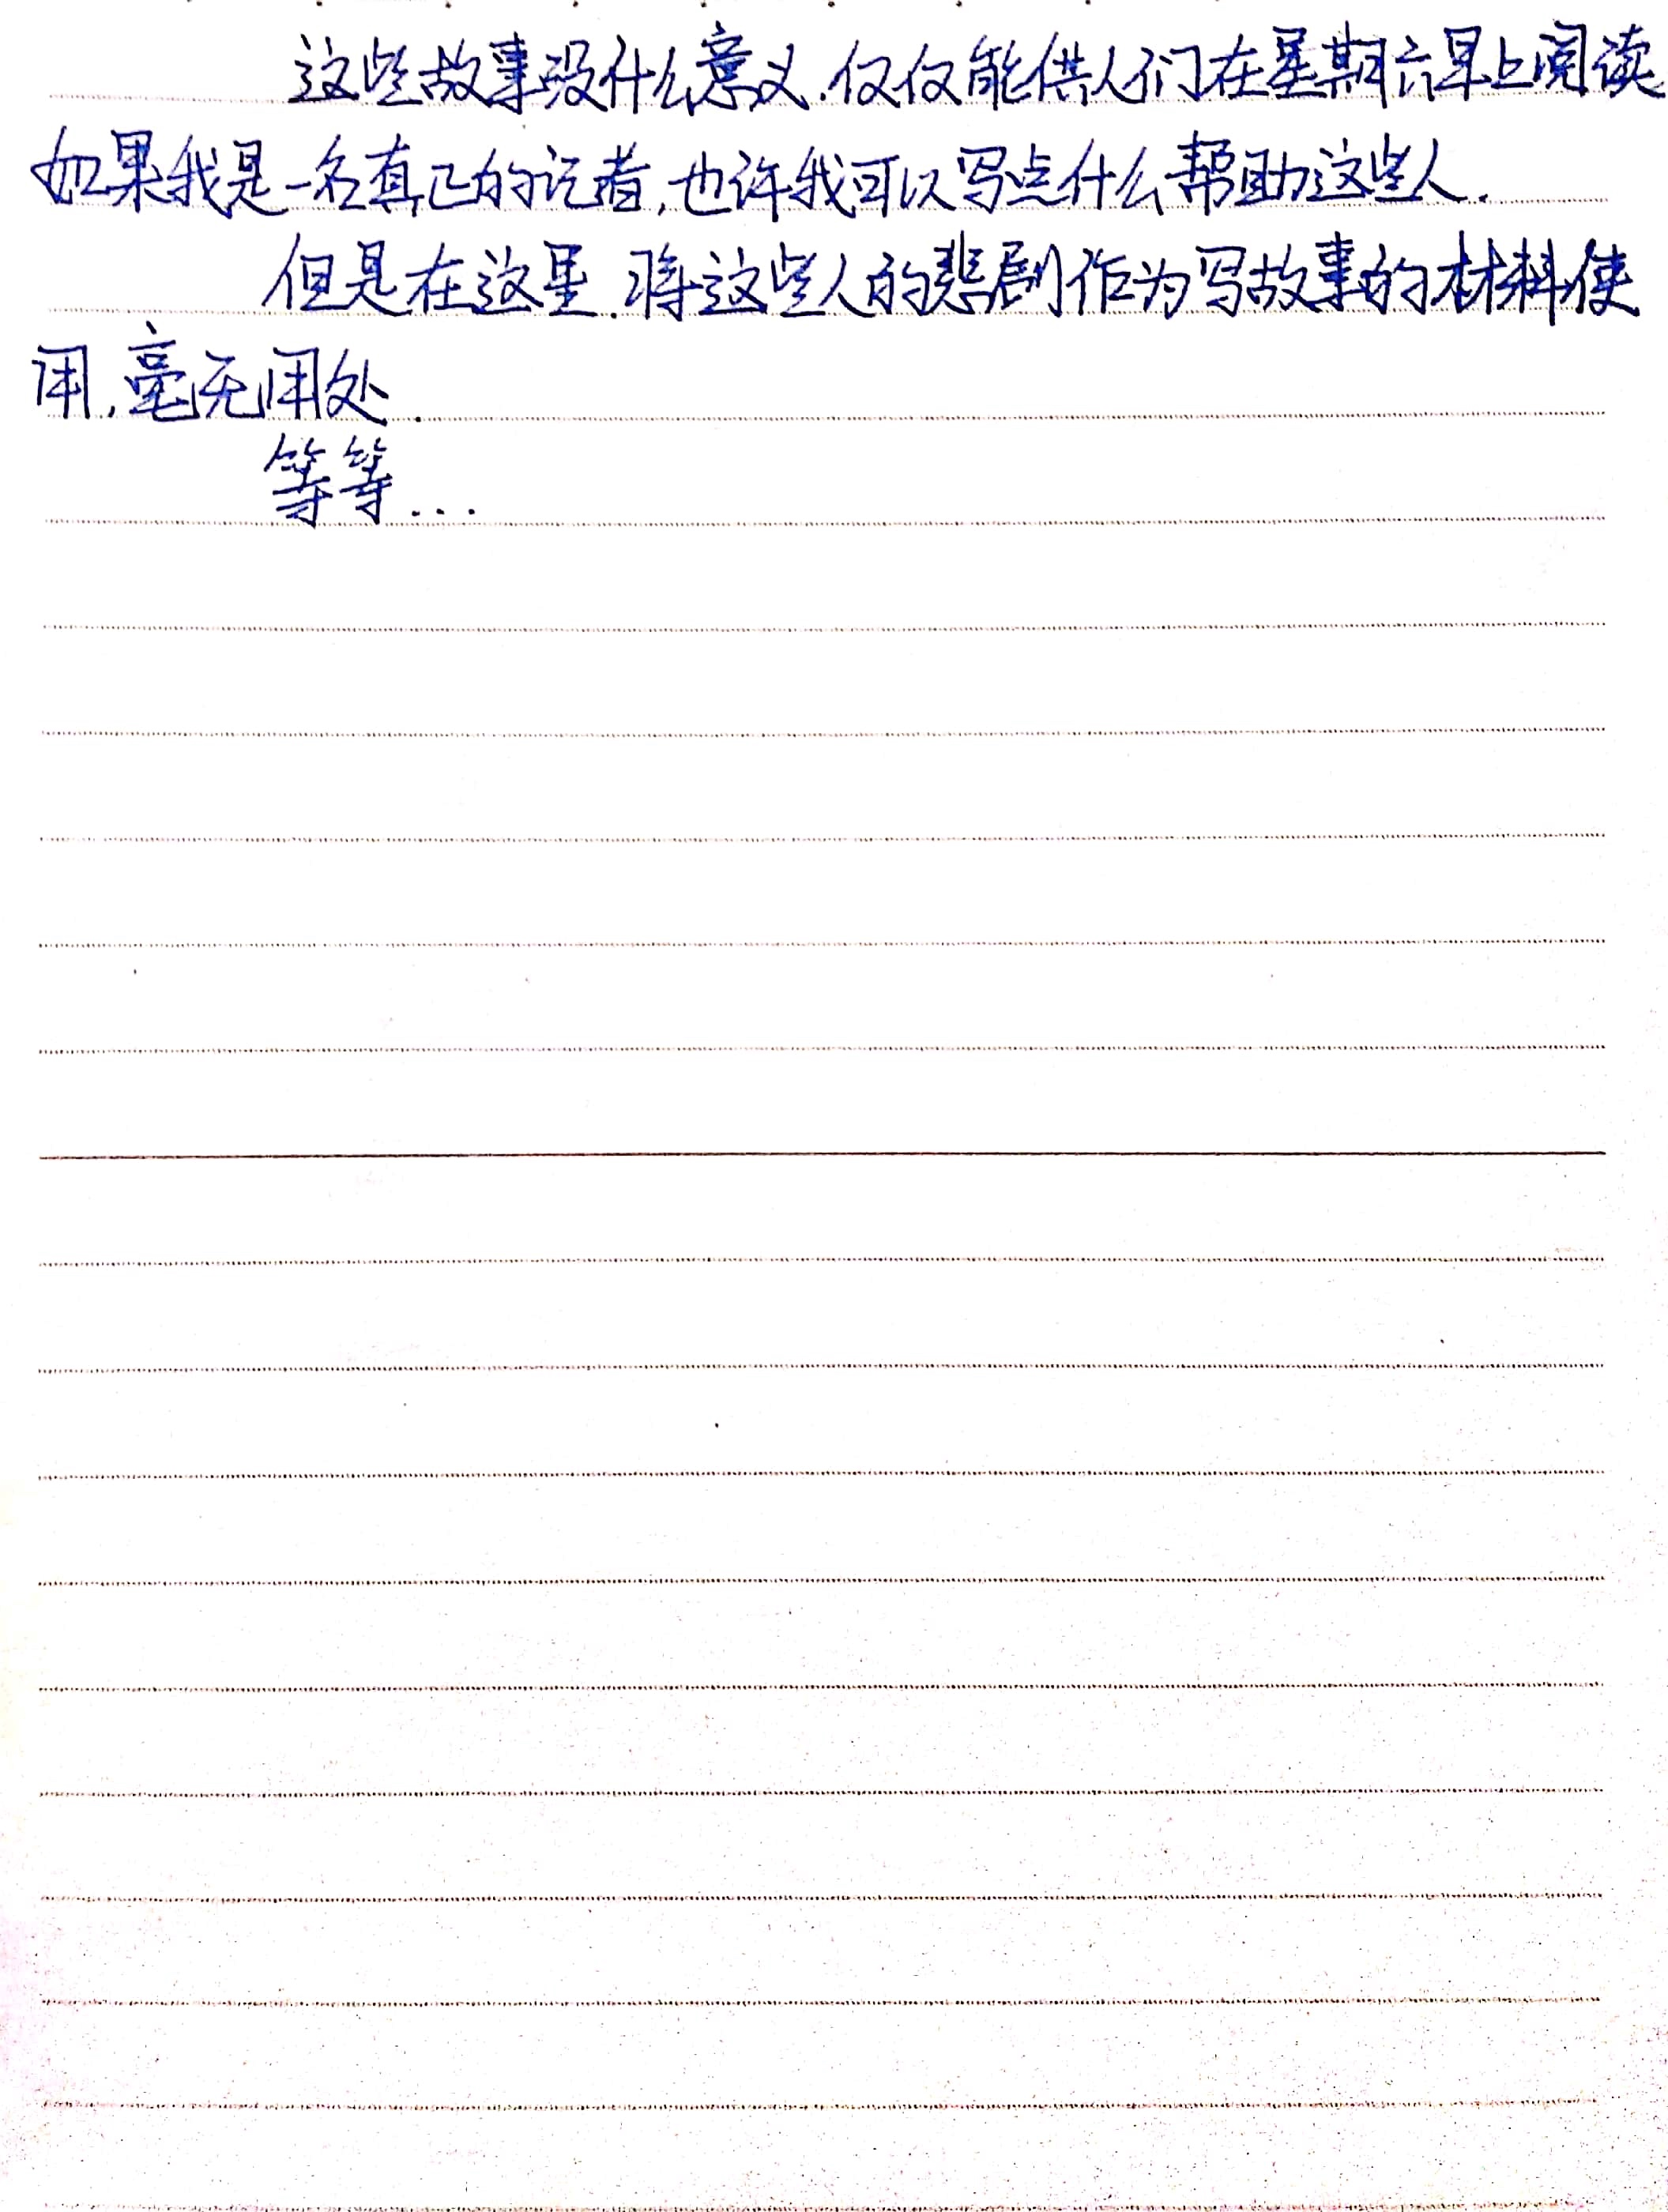 这些故事没什么意义.仅仅能供人们在星期六早上阅读
如果我是一名真正的记者,也许我可以写点什么帮助这些人.
但是在这里.将这些人的悲剧作为写故事的材料使
用,毫无用处.
等等...